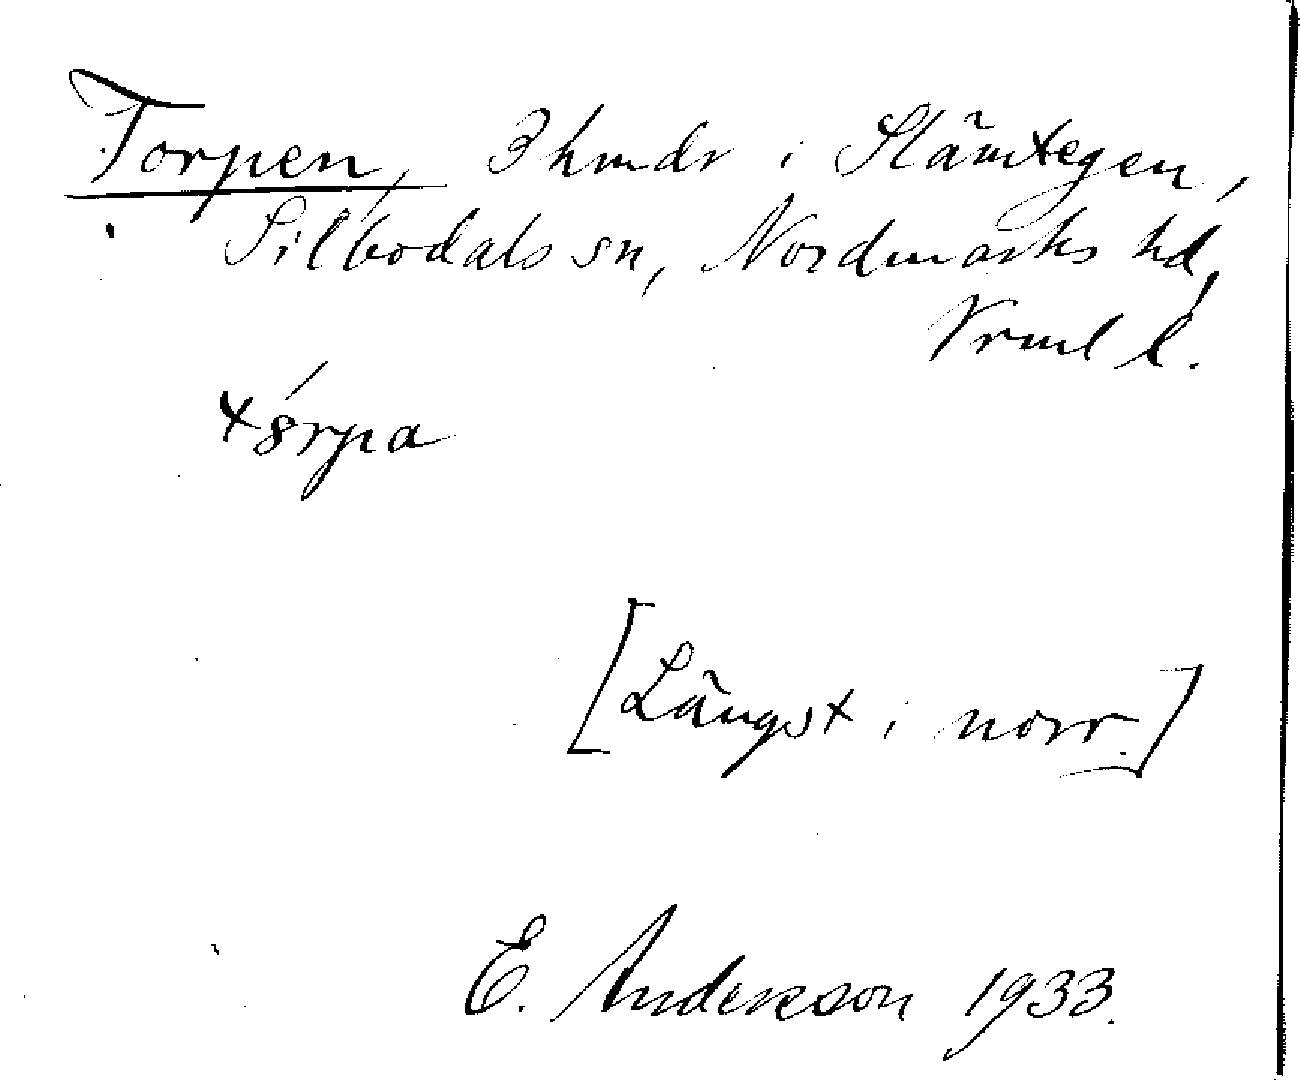 Torpen, 3 hmdr i Slämtegen,
Silbodals sn, Nordmarks hd,
Vrml l.
[Längst i norr.]
E. Andersson 1933.